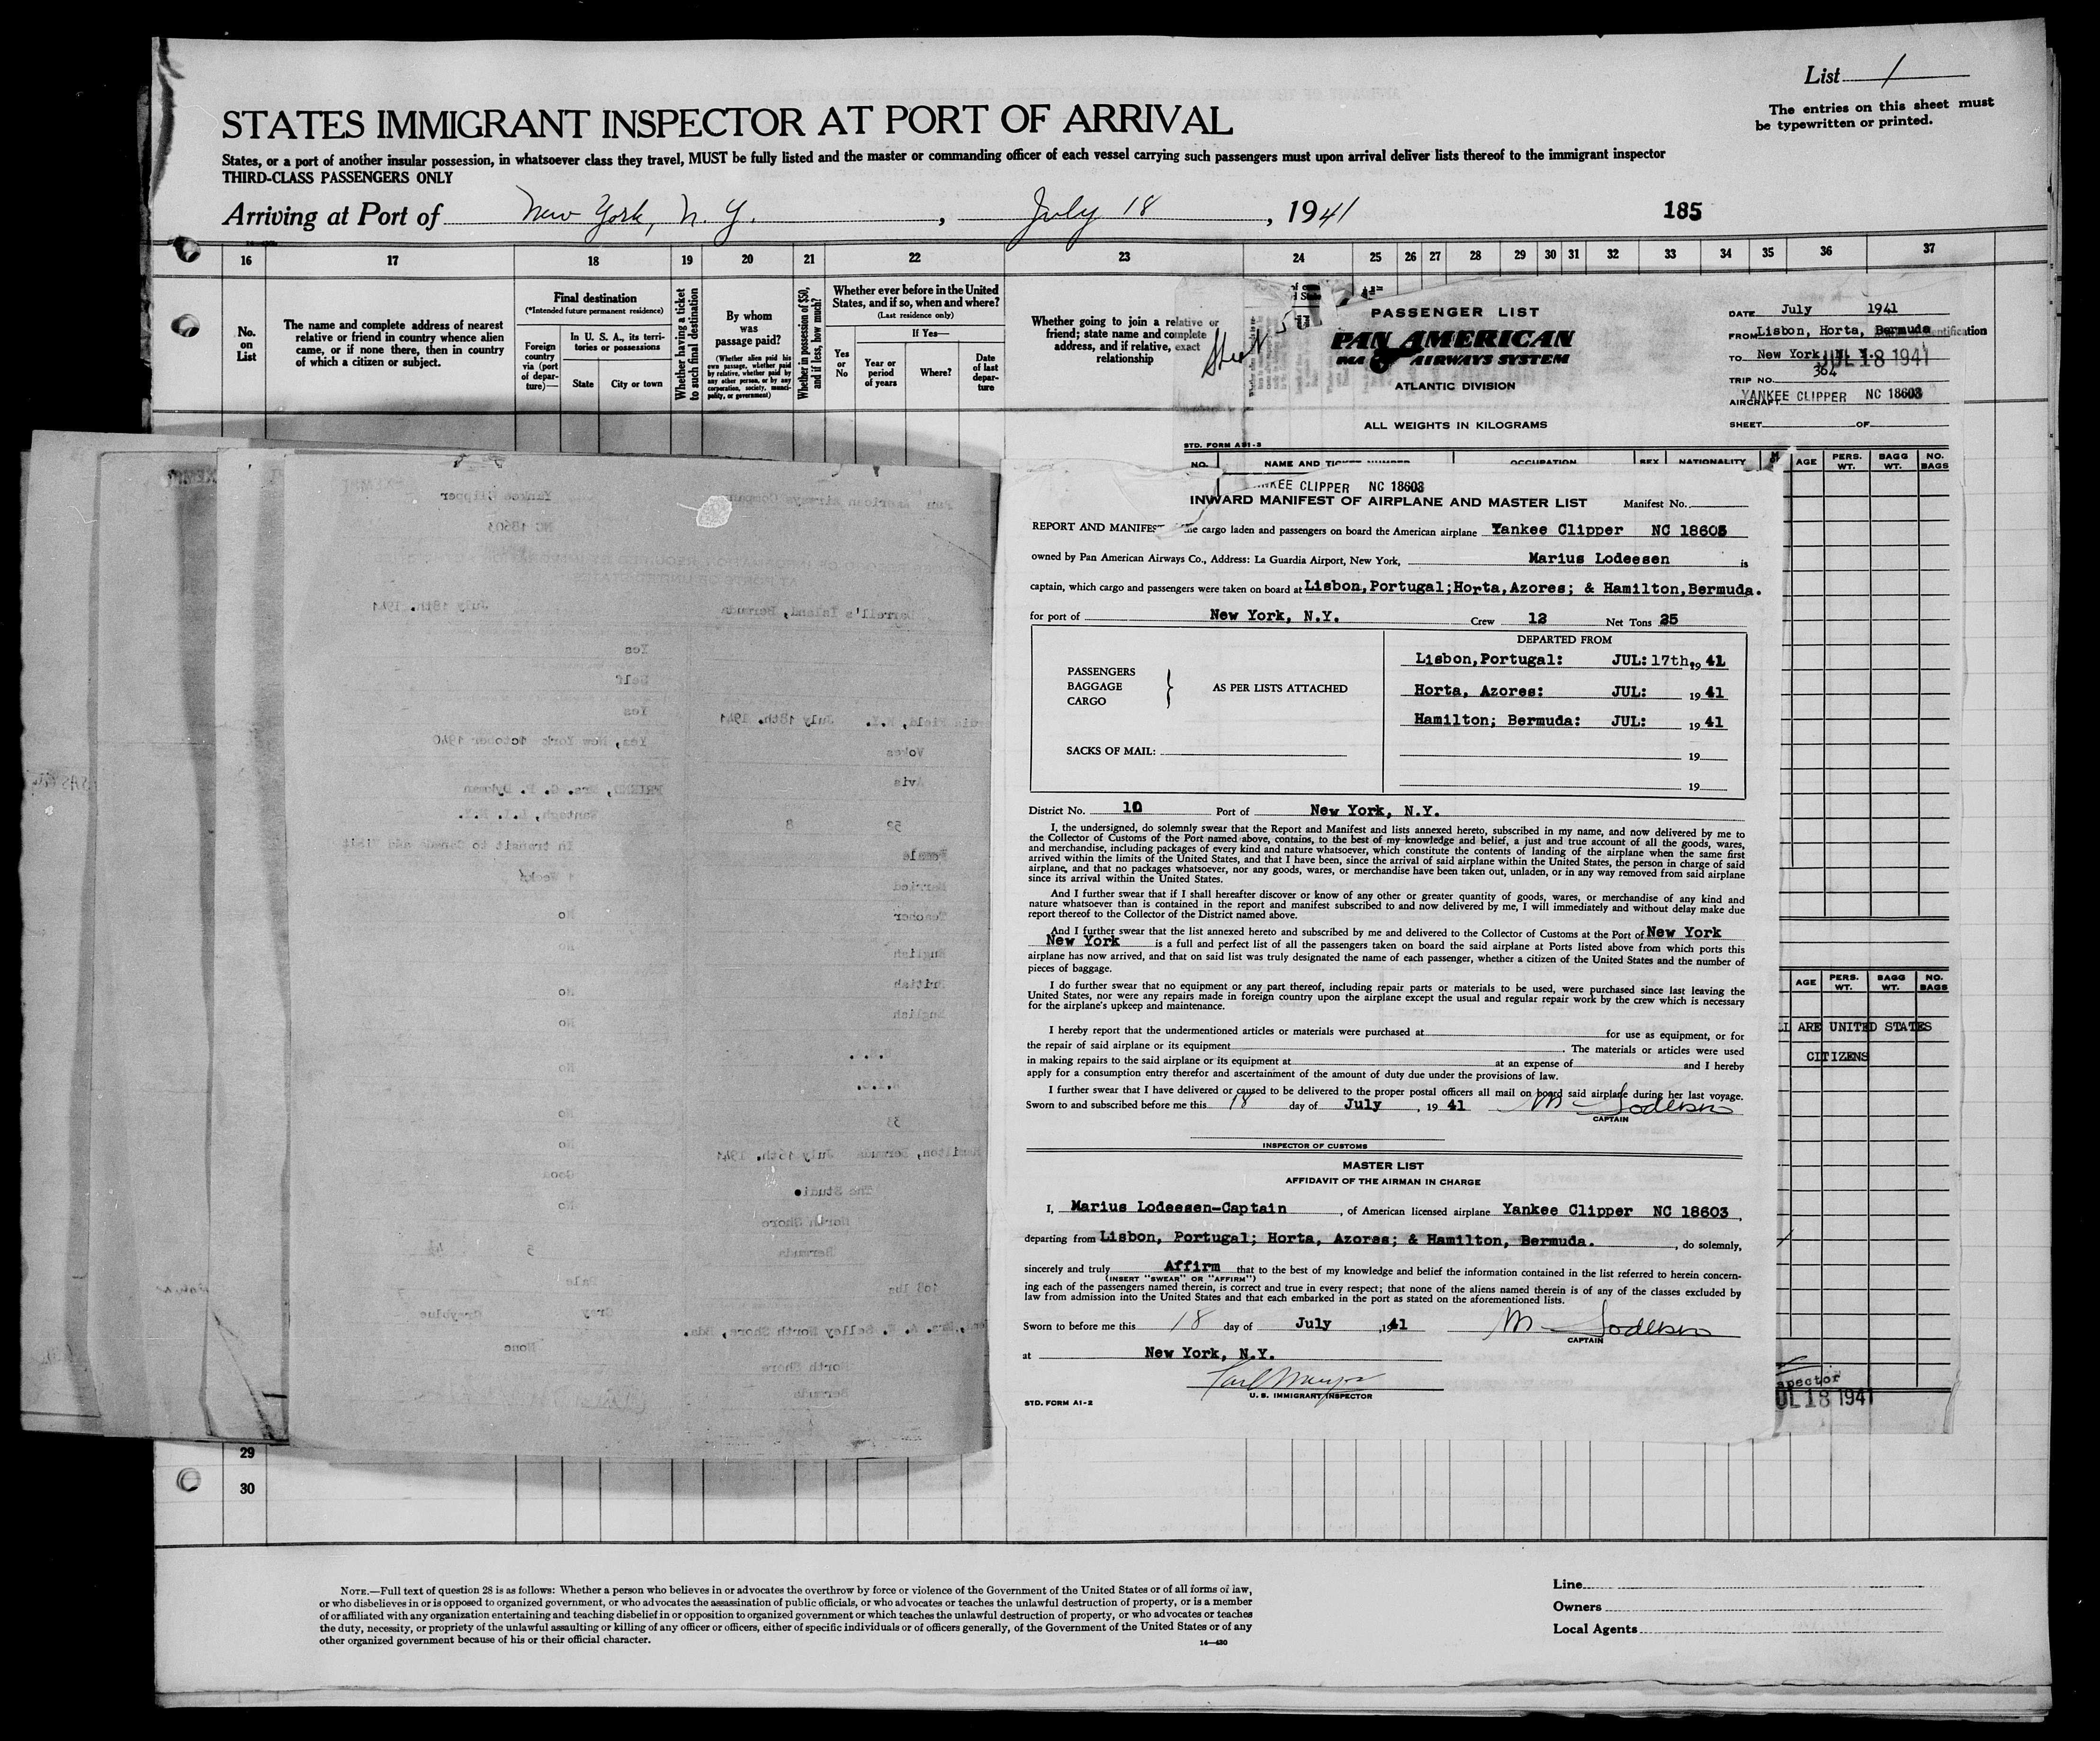 List 1
The entries on this sheet must
be typewritten or printed.
STATES IMMIGRANT INSPECTOR AT PORT OF ARRIVAL
States, or a port of another insular possession, in whatsoever class they travel, MUST be fully listed and the master or commanding officer of each vessel carrying such passengers must upon arrival deliver lists thereof to the immigrant inspector
THIRD-CLASS PASSENGERS ONLY
Arriving at Port of New York, N. Y. , July 18 , 1941
185
16 17 18 19 20 21 22 23 24 25 26 27 28 29 30 31 32 33 34 35 36 37
No.
on
List
The name and complete address of nearest
relative or friend in country whence alien
came, or if none there, then in country
of which a citizen or subject.
Final destination
(*Intended future permanent residence)
Foreign
country
via (port
of depar-
ture)—
In U. S. A., its terri-
tories or possessions
State
City or town
Whether having a ticket
to such final destination
By whom
was
passage paid?
(Whether alien paid his
own passage, whether paid
by relative, whether paid by
any other person, or by any
corporation, society, munici-
pality, or government)
Whether in possession of $50,
and if less, how much?
Whether ever before in the United
States, and if so, when and where?
(Last residence only)
Yes
or
No
If Yes—
Year or
period
of years
Where?
Date
of last
depar-
ture
Whether going to join a relative or
friend; state name and complete
address, and if relative, exact
relationship
PASSENGER LIST
PAN AMERICAN
AIRWAYS SYSTEM
ATLANTIC DIVISION
ALL WEIGHTS IN KILOGRAMS
DATE July 1941
FROM Lisbon, Horta, Bermuda
TO New York, N. Y.
JUL 18 1941
TRIP NO. 364
AIRCRAFT YANKEE CLIPPER NC 18603
SHEET OF
STD. FORM
NO. NAME AND TICKET NUMBER OCCUPATION SEX NATIONALITY AGE PERS. WT. BAGG WT. NO. BAGS
YANKEE CLIPPER NC 18603
INWARD MANIFEST OF AIRPLANE AND MASTER LIST Manifest No.
REPORT AND MANIFEST the cargo laden and passengers on board the American airplane Yankee Clipper NC 18603
owned by Pan American Airways Co., Address: La Guardia Airport, New York, Marius Lodeesen is
captain, which cargo and passengers were taken on board at Lisbon,Portugal;Horta,Azores; & Hamilton,Bermuda.
for port of New York, N.Y. Crew 12 Net Tons 25
PASSENGERS
BAGGAGE
CARGO
AS PER LISTS ATTACHED
SACKS OF MAIL:
DEPARTED FROM
Lisbon,Portugal: JUL: 17th, 19 41
Horta, Azores: JUL: 19 41
Hamilton; Bermuda: JUL: 19 41
19
19
District No. 10 Port of New York, N.Y.
I, the undersigned, do solemnly swear that the Report and Manifest and lists annexed hereto, subscribed in my name, and now delivered by me to
the Collector of Customs of the Port named above, contains, to the best of my knowledge and belief, a just and true account of all the goods, wares,
and merchandise, including packages of every kind and nature whatsoever, which constitute the contents of landing of the airplane when the same first
arrived within the limits of the United States, and that I have been, since the arrival of said airplane within the United States, the person in charge of said
airplane, and that no packages whatsoever, nor any goods, wares, or merchandise have been taken out, unladen, or in any way removed from said airplane
since its arrival within the United States.
And I further swear that if I shall hereafter discover or know of any other or greater quantity of goods, wares, or merchandise of any kind and
nature whatsoever than is contained in the report and manifest subscribed to and now delivered by me, I will immediately and without delay make due
report thereof to the Collector of the District named above.
And I further swear that the list annexed hereto and subscribed by me and delivered to the Collector of Customs at the Port of New York
New York is a full and perfect list of all the passengers taken on board the said airplane at Ports listed above from which ports this
airplane has now arrived, and that on said list was truly designated the name of each passenger, whether a citizen of the United States and the number of
pieces of baggage.
I do further swear that no equipment or any part thereof, including repair parts or materials to be used, were purchased since last leaving the
United States, nor were any repairs made in foreign country upon the airplane except the usual and regular repair work by the crew which is necessary
for the airplane's upkeep and maintenance.
I hereby report that the undermentioned articles or materials were purchased at for use as equipment, or for
the repair of said airplane or its equipment . The materials or articles were used
in making repairs to the said airplane or its equipment at at an expense of and I hereby
apply for a consumption entry therefor and ascertainment of the amount of duty due under the provisions of law.
I further swear that I have delivered or caused to be delivered to the proper postal officers all mail on board said airplane during her last voyage.
Sworn to and subscribed before me this 18 day of July , 19 41 M Lodeesen
CAPTAIN
INSPECTOR OF CUSTOMS
MASTER LIST
AFFIDAVIT OF THE AIRMAN IN CHARGE
I, Marius Lodeesen-Captain , of American licensed airplane Yankee Clipper NC 18603,
departing from Lisbon, Portugal; Horta, Azores; & Hamilton, Bermuda. , do solemnly,
sincerely and truly Affirm that to the best of my knowledge and belief the information contained in the list referred to herein concern-
(INSERT "SWEAR" OR "AFFIRM")
ing each of the passengers named therein, is correct and true in every respect; that none of the aliens named therein is of any of the classes excluded by
law from admission into the United States and that each embarked in the port as stated on the aforementioned lists.
Sworn to before me this 18 day of July ,1941 M Lodeesen
CAPTAIN
at New York, N.Y.
U. S. IMMIGRANT INSPECTOR
STD. FORM A1-2
AGE PERS. WT. BAGG WT. NO. BAGS
ARE UNITED STATES
CITIZENS
spector
JUL 18 1941
Pan American Airways Company
Yankee Clipper
NC 18603
Darrell's Island, Bermuda July 18th. 1941
Yes
Self
Yes
Field, N.Y. July 18th. 1941
Yes, New York October 1940
Vokes
Avis
FRIEND, Mrs. C. P. Dykman
Wantagh, L.I. N.Y.
52 8
In transit to Canada and
Female
Married
1 Week
Teacher
No
English
No
British
No
English
No
No
No
33
No
Hamilton, Bermuda July 16th. 1941
Good
The Studio
No
North Shore
Bermuda
5 4½
108 lbs
Pale
Grey Greyblue
Mrs. A. W. Selley North Shore, Bda.
None
North Shore
Bermuda
29
30
NOTE.—Full text of question 28 is as follows: Whether a person who believes in or advocates the overthrow by force or violence of the Government of the United States or of all forms of law,
or who disbelieves in or is opposed to organized government, or who advocates the assassination of public officials, or who advocates or teaches the unlawful destruction of property, or is a member
of or affiliated with any organization entertaining and teaching disbelief in or opposition to organized government or which teaches the unlawful destruction of property, or who advocates or teaches
the duty, necessity, or propriety of the unlawful assaulting or killing of any officer or officers, either of specific individuals or of officers generally, of the Government of the United States or of any
other organized government because of his or their official character.
14—430
Line
Owners
Local Agents